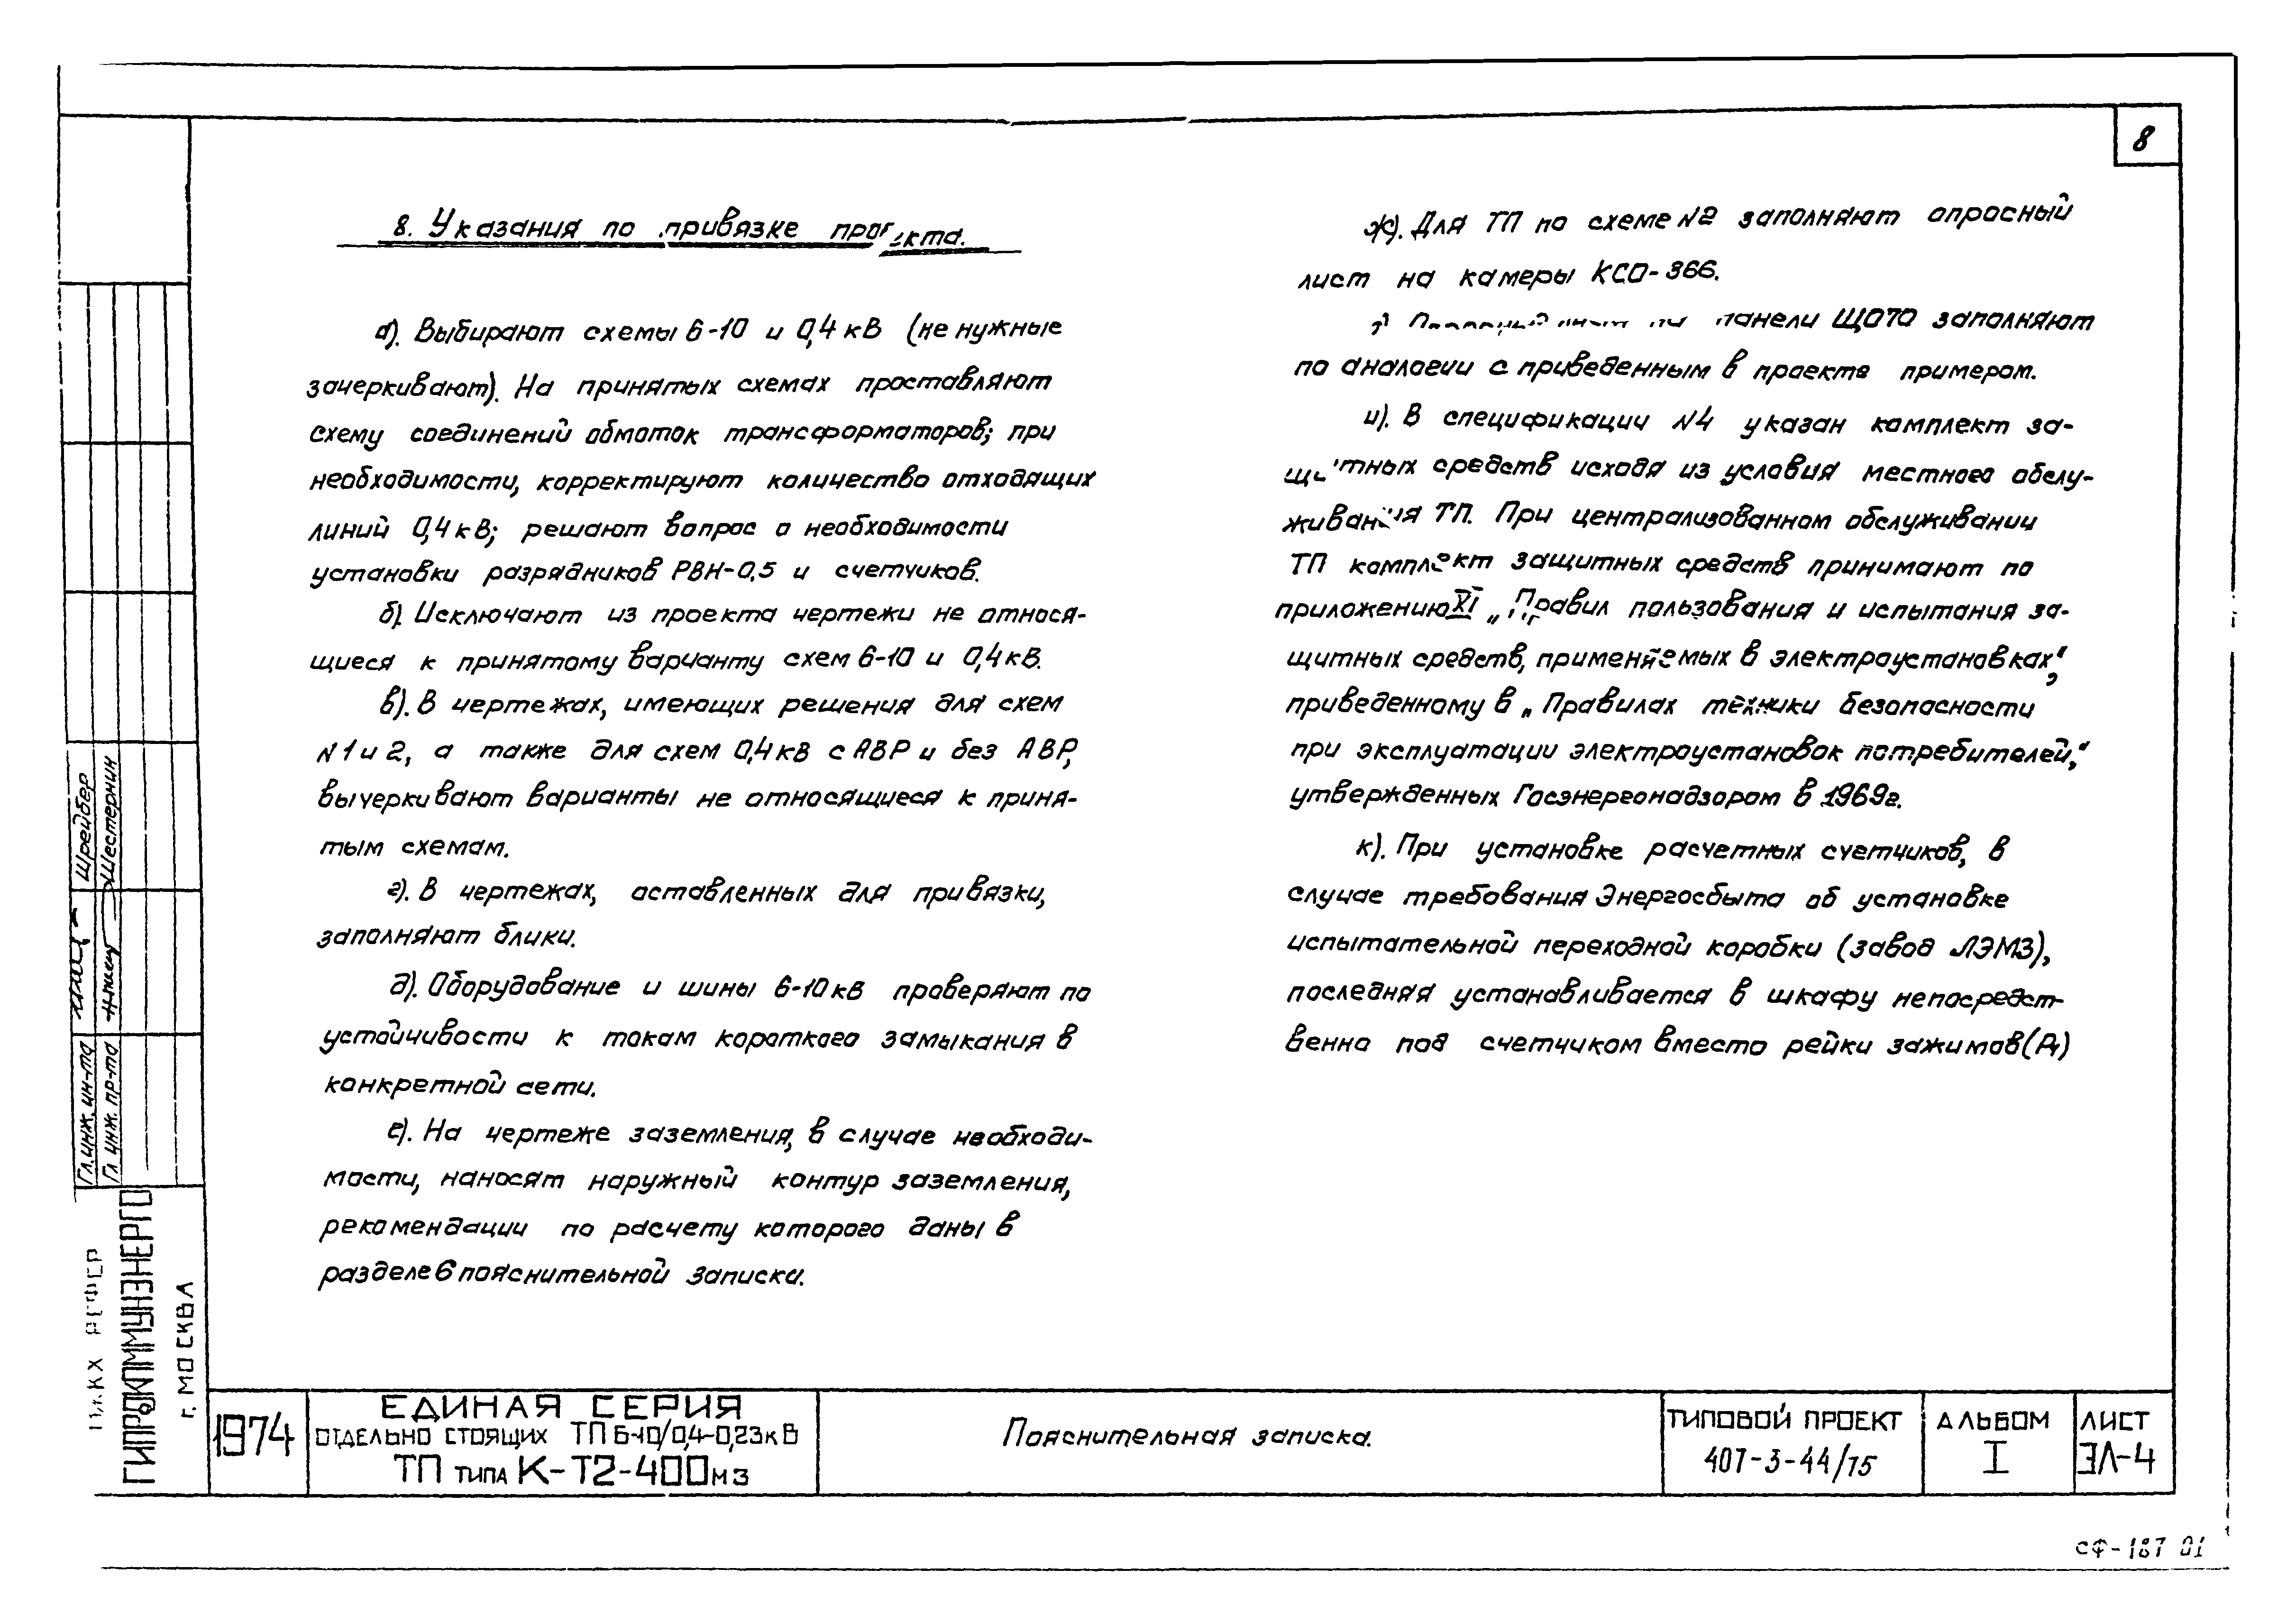 8
8. Указания по привязке проекта.
а). Выбирают схемы 6-10 и 0,4 кВ (не нужные
зачеркивают). На принятых схемах проставляют
схему соединений обмоток трансформаторов; при
необходимости, корректируют количество отходящих
линий 0,4 кВ; решают вопрос о необходимости
установки разрядников РВН-0,5 и счетчиков.
б). Исключают из проекта чертежи не относя-
щиеся к принятому варианту схем 6-10 и 0,4 кВ.
в). В чертежах, имеющих решения для схем
N 1 и 2, а также для схем 0,4 кВ с АВР и без АВР,
вычеркивают варианты не относящиеся к приня-
тым схемам.
г). В чертежах, оставленных для привязки,
заполняют блики.
д). Оборудование и шины 6-10 кв проверяют по
устойчивости к токам короткого замыкания в
конкретной сети.
е). На чертеже заземления, в случае необходи-
мости, наносят наружный контур заземления,
рекомендации по расчету которого даны в
разделе 6 пояснительной записки.
ж). Для ТП по схеме N2 заполняют опросный
лист на камеры КСО-366.
панели ЩО70 заполняют
по аналогии с приведенным в проекте примером.
и). В спецификации N4 указан комплект за-
щитных средств исходя из условия местного обслу-
живания ТП. При централизованном обслуживании
ТП комплект защитных средств принимают по
приложению XI „Правил пользования и испытания за-
щитных средств, применяемых в электроустановках",
приведенному в „Правилах техники безопасности
при эксплуатации электроустановок потребителей,"
утвержденных Госэнергонадзором в 1969г.
к). При установке расчетных счетчиков, в
случае требования Энергосбыта об установке
испытательной переходной коробки (завод ЛЭМЗ),
последняя устанавливается в шкафу непосредст-
венно под счетчиком вместо рейки зажимов
Шрейбер
Шестернин
Гл. инж. ин-та
Гл инж. пр-та
МЖКХ РСФСР
ГИПРОКОММУНЭНЕРГО
г. МОСКВА
1974
ЕДИНАЯ СЕРИЯ
ОТДЕЛЬНО СТОЯЩИХ ТП 6-10/0,4-0,23кВ
ТП ТИПА К-Т2-400 М3
Пояснительная записка.
ТИПОВОЙ ПРОЕКТ
407-3-44/75
АЛЬБОМ
I
ЛИСТ
ЭЛ-4
СФ-187 01